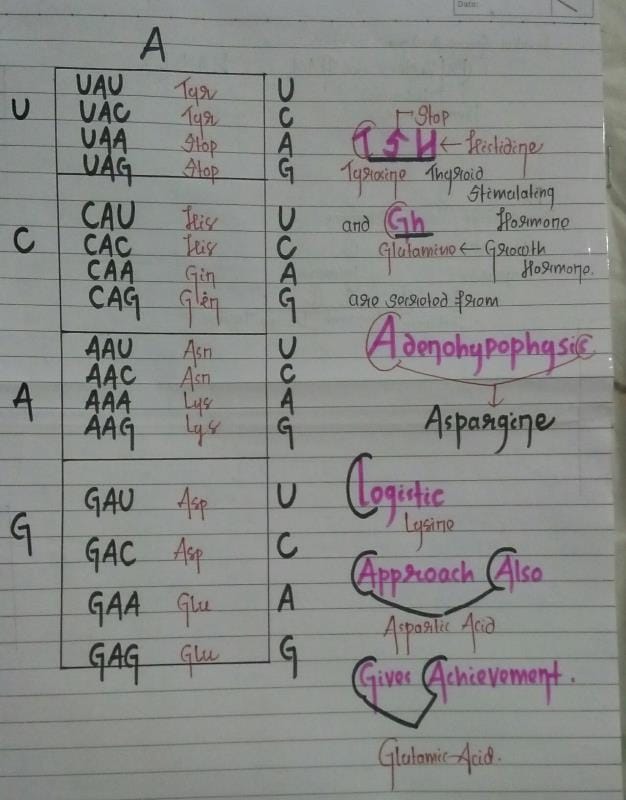 Date:
A
U
UAU Tyr U
UAC Tyr C
UAA Stop A
UAG Stop G
C
CAU His U
CAC His C
CAA Gln A
CAG Glen G
A
AAU Asn U
AAC Asn C
AAA Lys A
AAG Lys G
G
GAU Asp U
GAC Asp C
GAA Glu A
GAG Glu G
Stop
TSH ← Histidine
Tyrosine Thyroid
Stimulating
and Gh Hormone
Glutamine ← Growth
Hormone.
are secreted from
Adenohypophysis
Aspargine
Logistic
Lysine
Approach Also
Aspartic Acid
Gives Achievement.
Glutamic Acid.